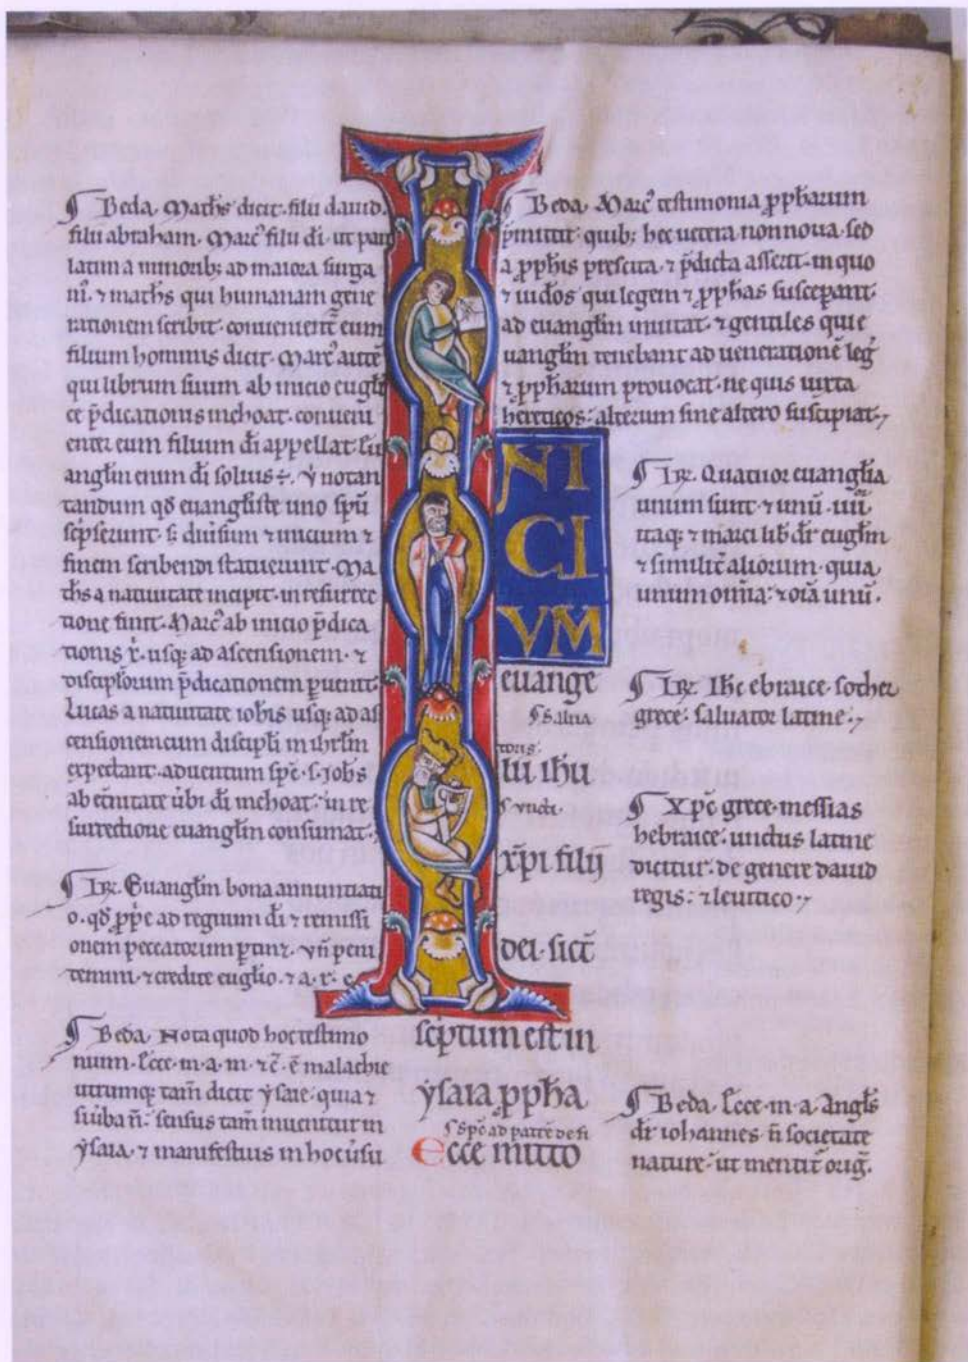 ¶ Beda. Matħs dicit. filii dauid.
filii abraham. Marcꝰ filii di. ut pau
latim a minorib; ad maiora surga
mꝰ. ⁊ matħs qui humanam gene
rationem scribit. conuenient̄ eum
filium hominis dicit. Marcꝰ autē
qui librum suum ab inicio eugłi
ce p̄dicationis inchoat. conueni
enter eum filium di appellat. Eu
angłm enim di solius ÷. Ỳ notan
tandum qđ euangłiste uno spū
scͥpserunt. s; diuisum ⁊ inicium ⁊
finem scribendi statuerunt. Ma
tħs a natiuitate incipit. in resurrec
tione finit. Marcꝰ ab inicio p̄dica
tionis x̄. usq; ad ascensionem. ⁊
discipłorum p̄dicationem ꝑuenit.
Lucas a natiuitate ioħis usq; ad as
censionem cum discipłi in iħrłm
expectant. aduentum spc̄. s. Joħs
ab et̄nitate ūbi di inchoat. in re
surrectione euangłm consumat.
¶ IR̄. Euangłm bona annuntiati
o. qđ ꝓpͥe ad regnum di ⁊ remissi
onem peccatorum ꝑtin⁊. vn̄ peni
temini. ⁊ credite eugłio. ⁊ a. r. c.
¶ Beda. Nota quod hoc testimo
nium. Ecce. m. a. m. ⁊c̄. ē malachie
utrumq; tam̄ dicit ẏsaie. quia ⁊
si ūba n̄. sensus tam̄ inuenitur in
ẏsaia. ⁊ manifestius in hoc ūsu
I
NI
CI
VM
euange
¶ Salua
toris.
lii iħu
¶ Vncti.
xp̄i filij
dei. sict̄
scͥptum est in
ẏsaia ꝓpħa
¶ Spc̄ ad patrē de fi
Ecce mitto
¶ Beda. Marcꝰ testimonia ꝓpħarum
p̄mittit. quib; hec uetera non noua. sed
a ꝓpħis prescita. ⁊ p̄dicta asserit. in quo
⁊ iudos qui legem ⁊ ꝓpħas suscepant.
ad euangłm inuitat. ⁊ gentiles qui e
uangłm tenebant ad uenerationē leg̃
⁊ ꝓpħarum prouocat. ne quis iuxta
hereticos. alterum sine altero suscipiat.
¶ IR̄. Quatuor euangłia
unum sunt. ⁊ unū. iiii͛
itaq; ⁊ marci lib͛ dr̄ eugłm
⁊ similit̄ aliorum. quia
unum om̄ia. ⁊ oīa unū.
¶ IR̄. Iħc ebraice. sother
grece. saluator latine.
¶ Xpc̄ grece. messias
hebraice. unctus latine
dicitur. de genere dauid
regis. ⁊ leuitico.
¶ Beda. Ecce. m. a. Angłs
dr̄ iohannes. n̄ societate
nature. ut mentit̄ orig̃.